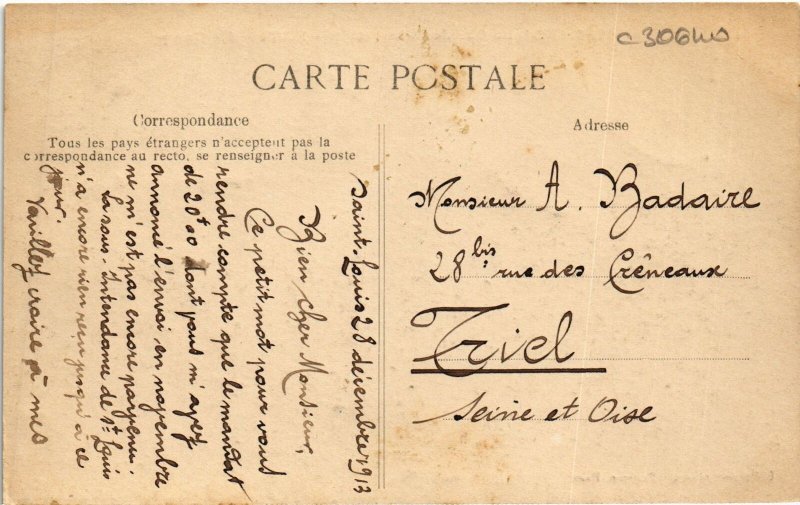 CARTE POSTALE
Correspondance
Tous les pays étrangers n'acceptent pas la
correspondance au recto, se renseigner à la poste
Adresse
Saint-Louis 28 décembre 1913
Bien cher Monsieur,
Ce petit mot pour vous
rendre compte que le mandat
de 20f00 dont vous m'avez
annoncé l'envoi en novembre
ne m'est pas encore parvenu.
La sous-Intendance de St Louis
n'a encore rien reçu jusqu'à ce
jour.
Veuillez croire à mes
Monsieur A. Badaire
28 bis rue des Crêneaux
Triel
Seine et Oise